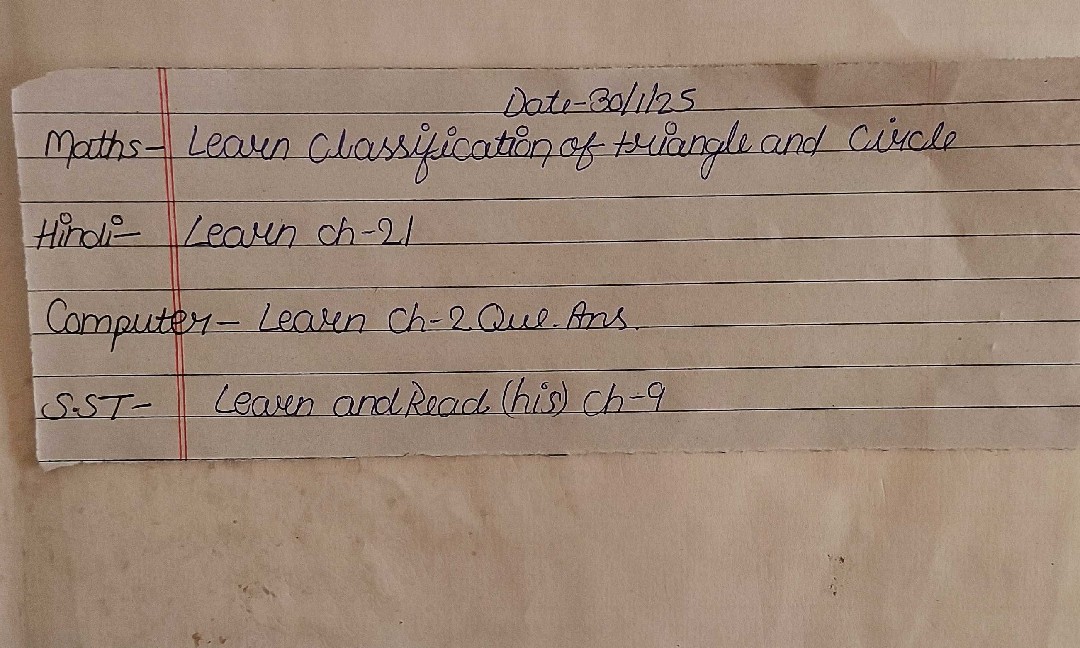 Date-30/1/25
Maths- Learn Classification of triangle and Circle
Hindi- Learn ch-21
Computer- Learn Ch-2 Que. Ans.
S.ST- Learn and Read (his) ch-9